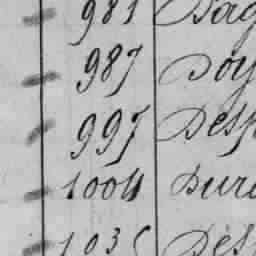 981 Dag
987 Doy
997 Desp
1004 Dure
103 Des